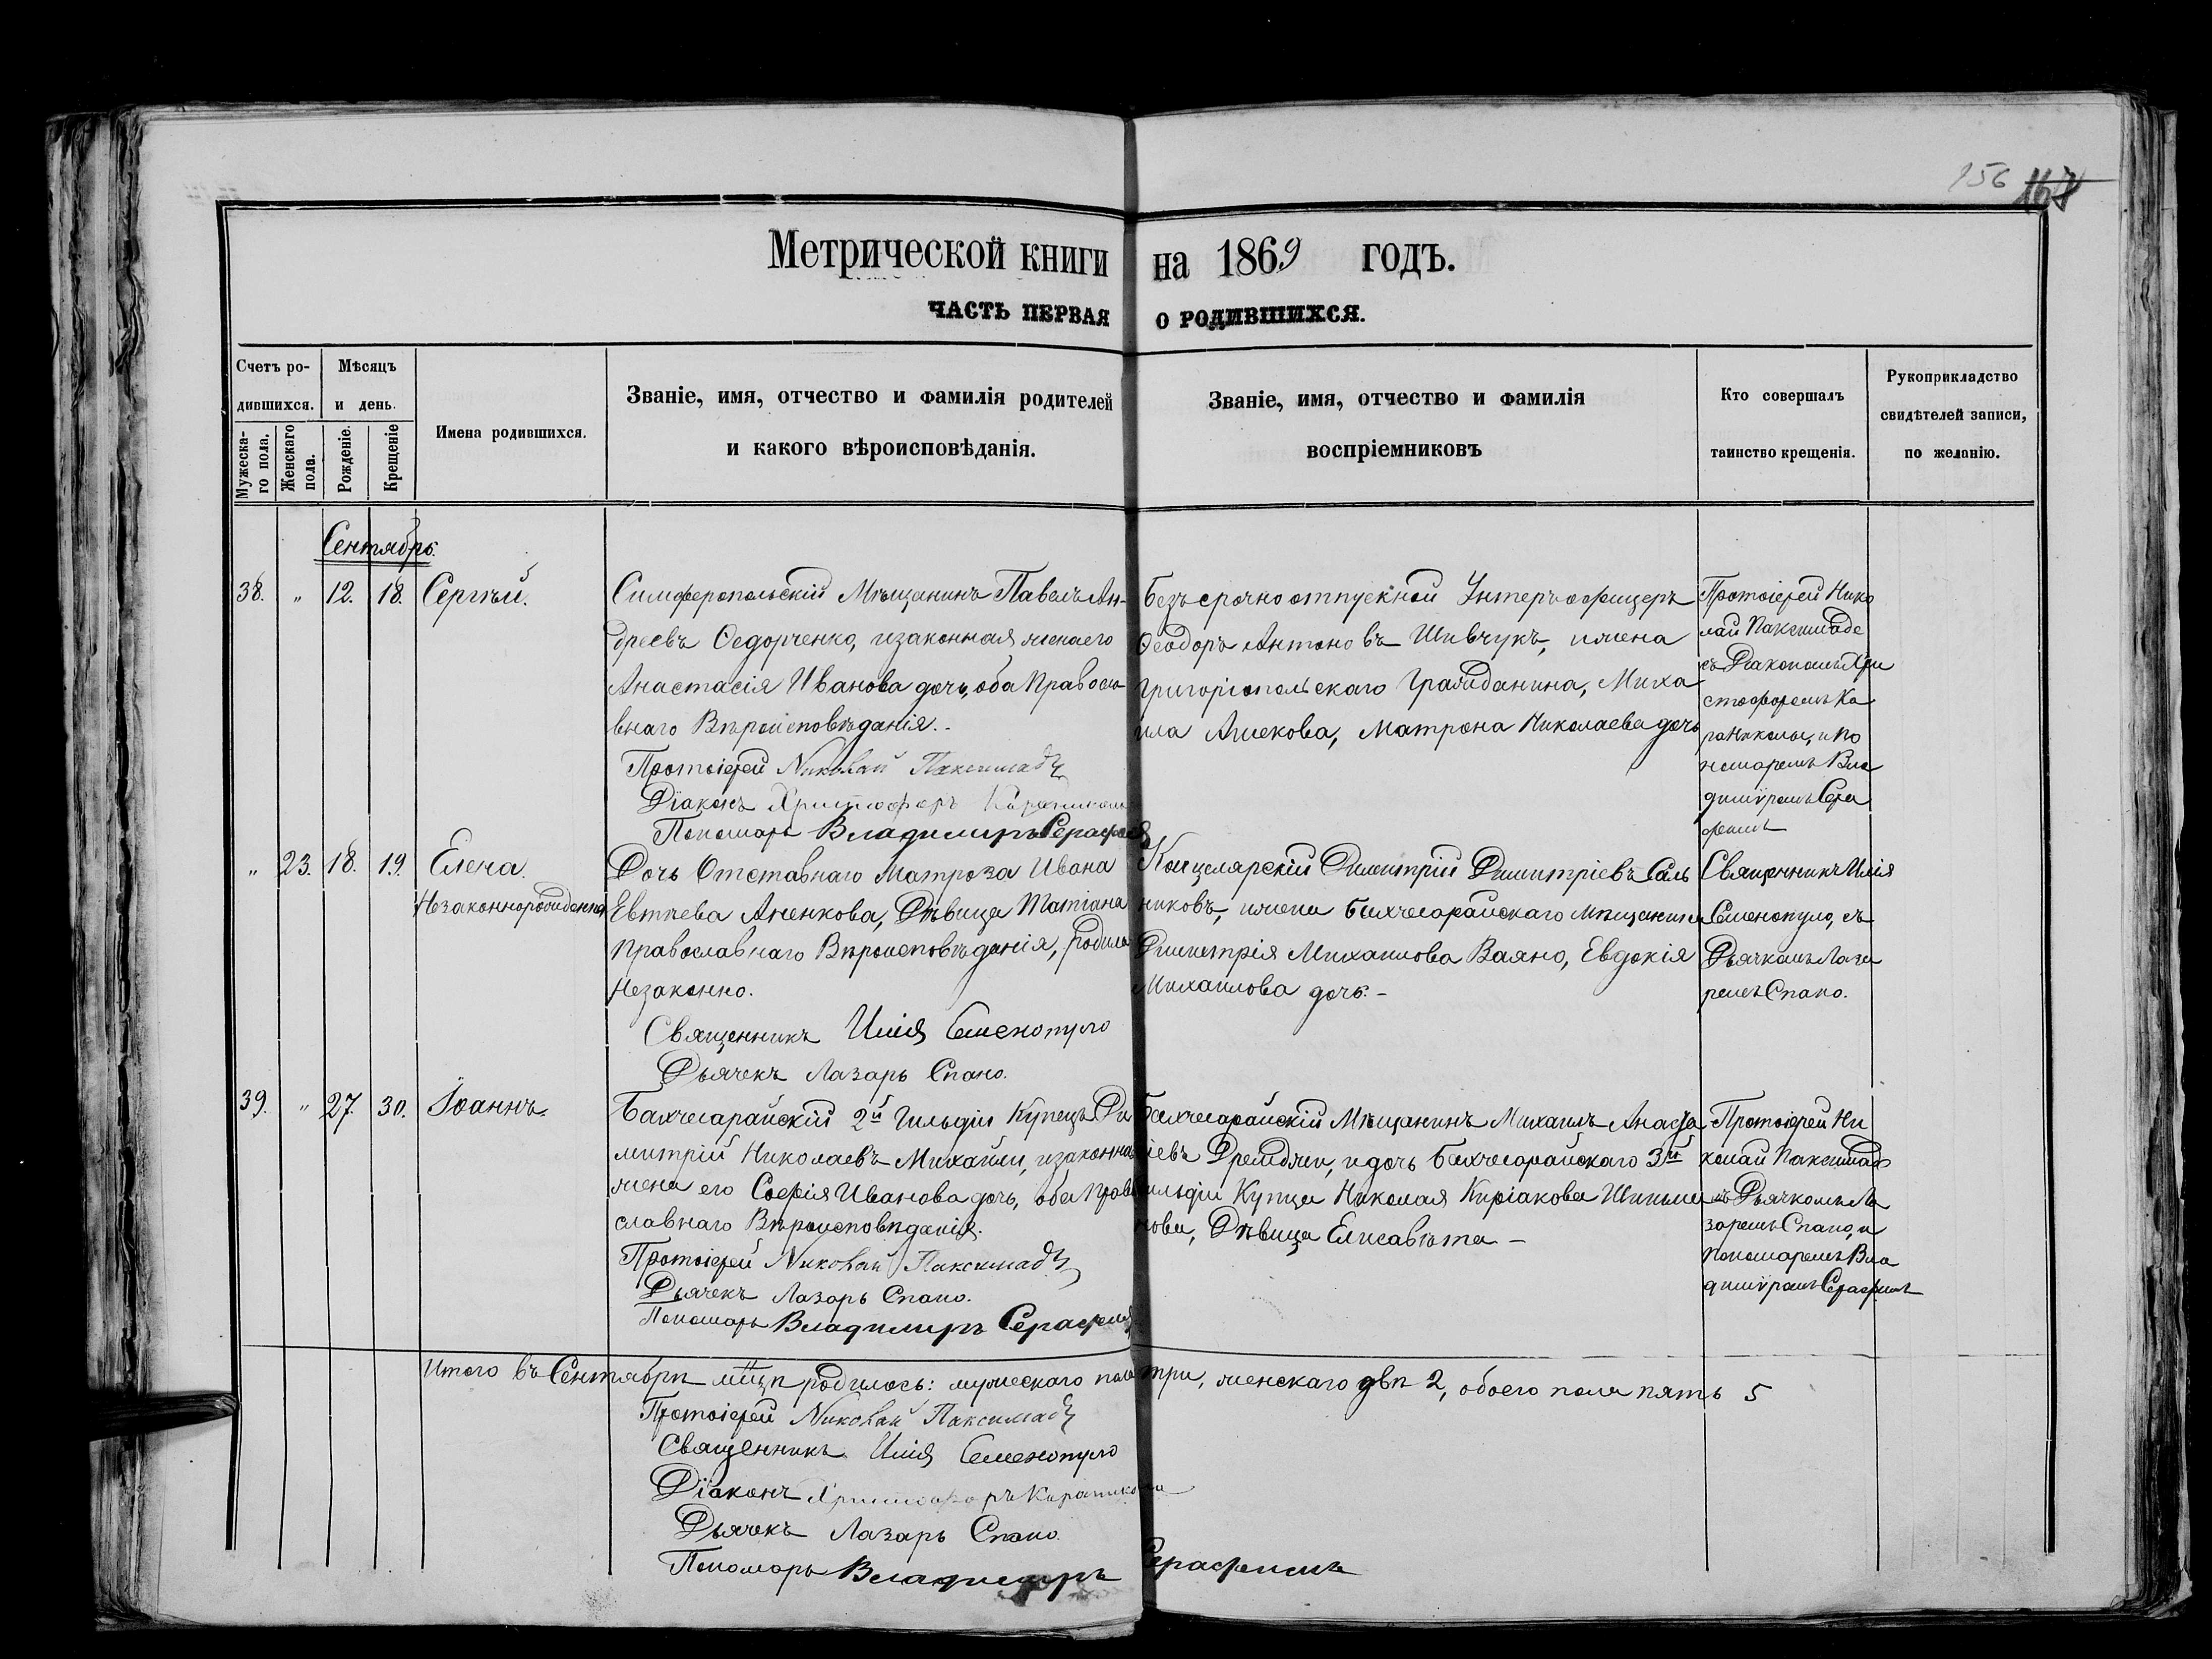 156 168
Метрической книги на 1869 годъ.
ЧАСТЬ ПЕРВАЯ О РОДИВШИХСЯ.
Счетъ ро-
дившихся.
Мужеска-
го пола.
Женскаго
пола.
Мѣсяцъ
и день.
Рожденіе.
Крещеніе
Имена родившихся.
Званіе, имя, отчество и фамилія родителей
и какого вѣроисповѣданія.
Званіе, имя, отчество и фамилія
воспріемниковъ
Кто совершалъ
таинство крещенія.
Рукоприкладство
свидѣтелей записи,
по желанію.
Сентябрь.
38. „ 12. 18. Сергѣй.
Симферопольскій Мѣщанинъ Павелъ Ан-
дреевъ Ѳедорченко, изаконная жена его
Анастасія Иванова дочь, оба Правосла-
внаго Вѣроисповѣданія.
Протоіерей Николай Паксимадъ
Діаконъ Христофоръ
Пономарь Владимиръ Серафимъ
Безъсрочноотпускной Унтеръ офицеръ
Ѳеодоръ Антоновъ Шивчукъ, ижена
Григоріопольскаго Гражданина, Миха
ила Ашекова, Матрона Николаева дочь
Протоіерей Нико
лай Паксимаде
съ Діакономъ Хри
стофоромъ Ка
раниколы, и по
номаремъ Вла
димiромъ Сера
фимъ
„ 23. 18. 19. Елена.
Незаконнорожденна
Дочь Отставнаго Матроза Ивана
Евтіева Аненкова, Дѣвица Татіана
Православнаго Вѣроисповѣданія, родила
Незаконно.
Священникъ Илія Семенопуло
Дьячекъ Лазарь Спано.
Канцелярскій Димитрій Димитріевъ Саль
никовъ, ижена Бахчесарайскаго Мѣщанина
Димитрія Михаилова Ваяно, Евдокія
Михаилова дочь. -
Священникъ Илія
Семенопуло, съ
Дьячкомъ Лаза
ремъ Спано.
39. „ 27. 30. Іоаннъ.
Бахчесарайскій 2й Гильдіи Купецъ Ди
митрій Николаевъ Михайли, изаконная
жена его Софія Иванова дочь, оба Право
славнаго Вѣроисповѣданія.
Протоіерей Николай Паксимадъ
Дьячекъ Лазарь Спано.
Пономарь Владимиръ Серафимъ
Бахчесарайскій Мѣщанинъ Михаилъ Анаста
іевъ идочь Бахчесарайскаго 3й
Гильдіи Купца Николая Киріакова Шишма
нова, Дѣвица Елисавѣта -
Протоіерей Ни
колай Паксимадъ
съ Дьячкомъ Ла
заремъ Спано, и
Пономаремъ Вла
димiромъ Серафимъ
Итого въ Сентябрѣ мцѣ родилось: мужескаго пола три, женскаго двѣ 2, обоего пола пять 5
Протоіерей Николай Паксимадъ
Священникъ Илія Семенопуло
Діаконъ Христофоръ Караникола
Дьячекъ Лазарь Спано.
Пономарь Владимиръ Серафимъ